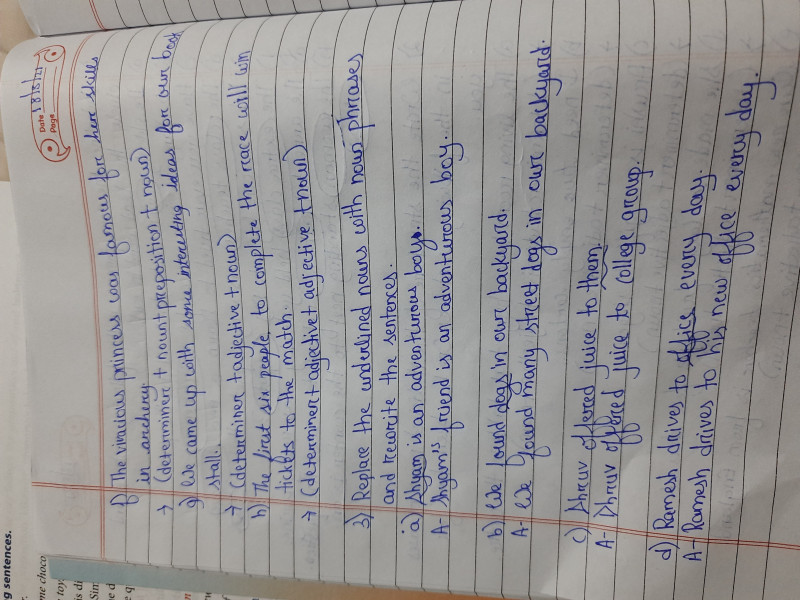 Date
Page
f) The vivacious princess was famous for her skills
in archery
→ (determiner + noun + preposition + noun)
g) We came up with some interesting ideas for our book
stall.
→ (determiner + adjective + noun)
h) The first six people to complete the race will win
tickets to the match.
→ (determiner + adjective + adjective + noun)
3) Replace the underlined nouns with noun phrases
and rewrite the sentences.
a) Shyam is an adventurous boy.
A- Shyam's friend is an adventurous boy.
b) We found dogs in our backyard.
A- We found many street dogs in our backyard.
c) Dhruv offered juice to them.
A- Dhruv offered juice to college group.
d) Ramesh drives to office every day.
A- Ramesh drives to his new office every day.
g sentences.
me choco
toy